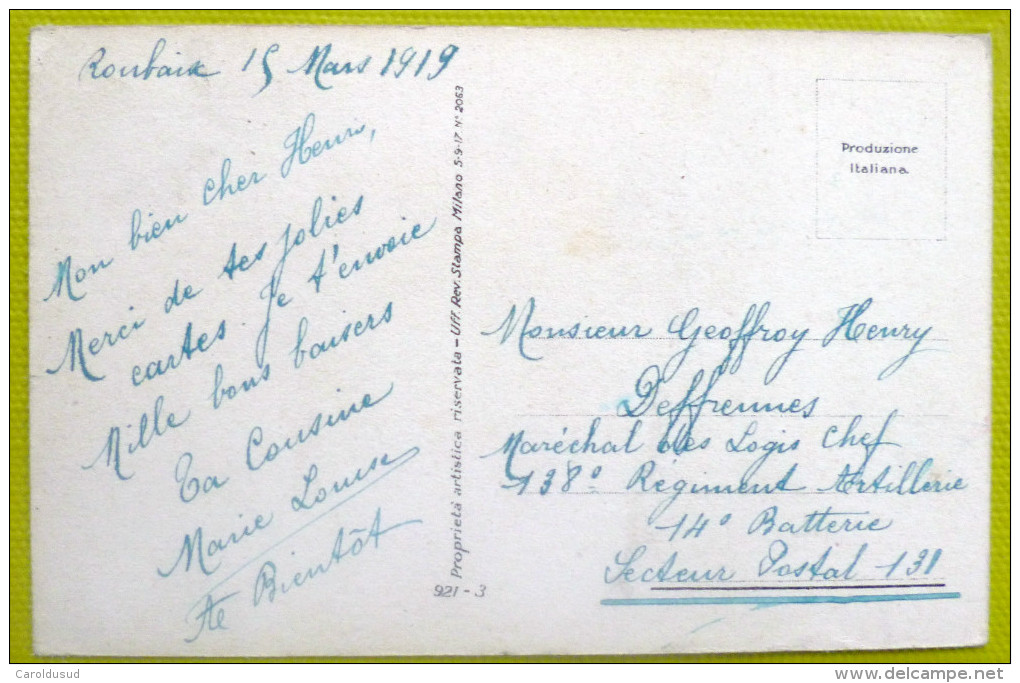 Roubaix 15 Mars 1919
Mon bien cher Henri,
Merci de tes jolies
cartes. Je t'envoie
Mille bons baisers
Ta Cousine
Marie Louise
A Bientôt
Proprietà artistica riservata - Uff. Rev. Stampa Milano 5-9-17 N° 2063
921-3
Produzione
Italiana.
Monsieur Geoffroy Henry
Deffrennes
Maréchal des Logis Chef
138° Régiment Artillerie
14° Batterie
Secteur Postal 131
Caroldusud
delcampe.net